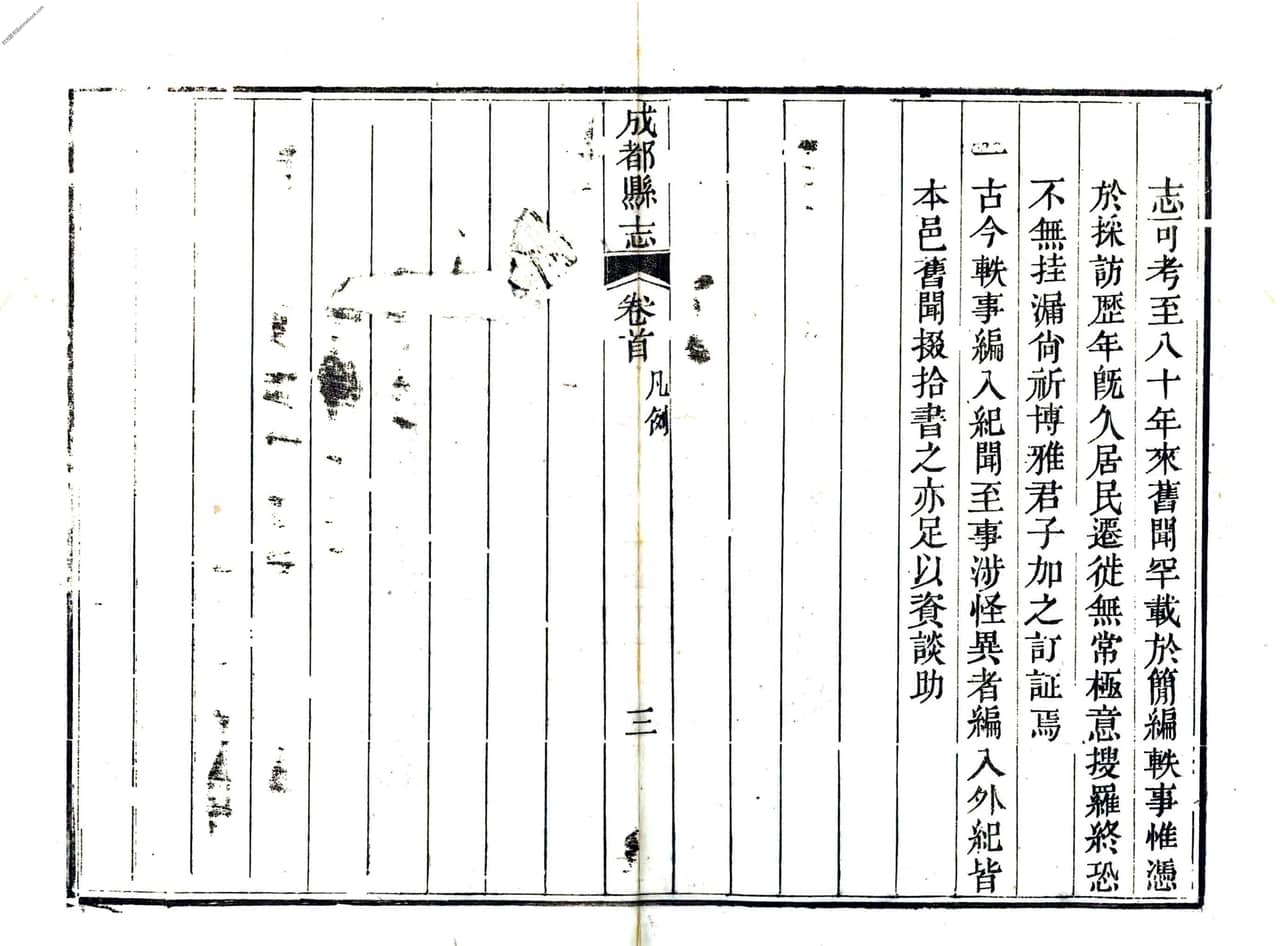 志可考至八十年來舊聞罕載於簡編軼事惟憑
於採訪歷年旣久居民遷徙無常極意搜羅終恐
不無挂漏尙祈博雅君子加之訂証焉
一古今軼事編入紀聞至事涉怪異者編入外紀皆
本邑舊聞掇拾書之亦足以資談助
成都縣志
卷首
凡例
三